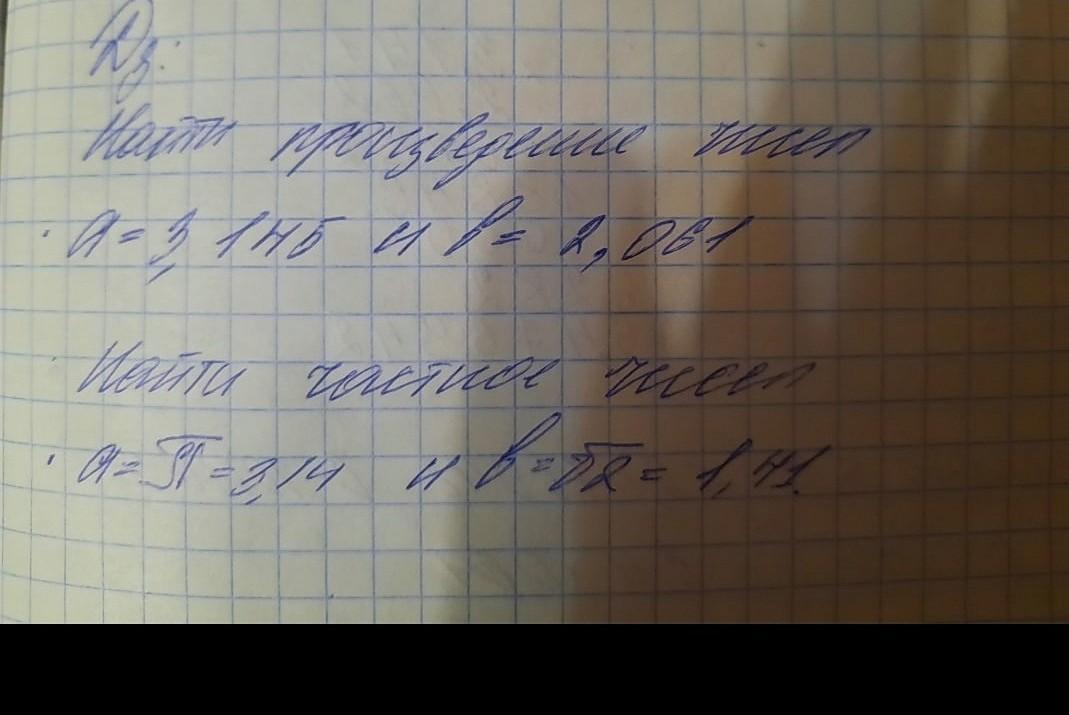 Дз.
Найти произведение чисел
а = 3,145 и в = 2,061
Найти частное чисел
а = π = 3,14 и в = √2 = 1,41.